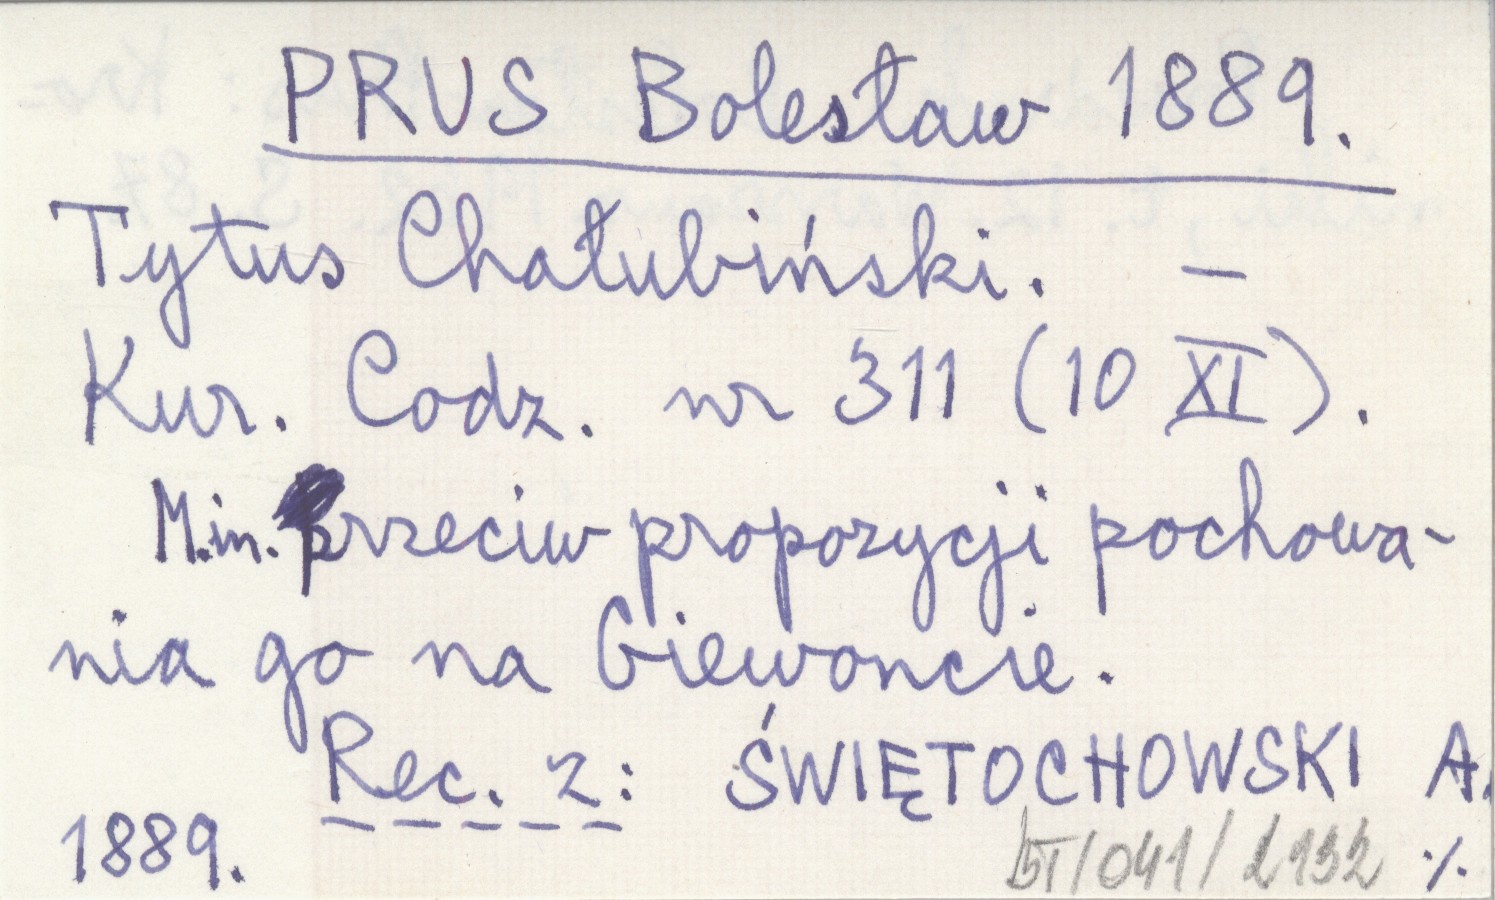 PRUS Bolesław 1889.
Tytus Chałubiński. —
Kur. Codz. nr 311 (10 XI).
M.in. przeciw propozycji pochowa-
nia go na Giewoncie.
Rec. z: ŚWIĘTOCHOWSKI A.
1889.
/041/2132 ./.